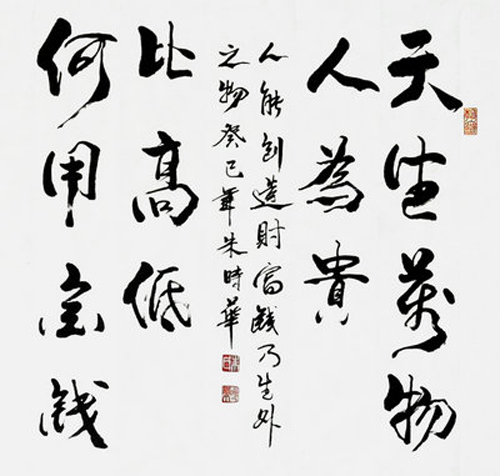 天生萬物
人為貴
何用金錢
比高低
人能創造財富錢乃生外
之物癸巳年朱時華